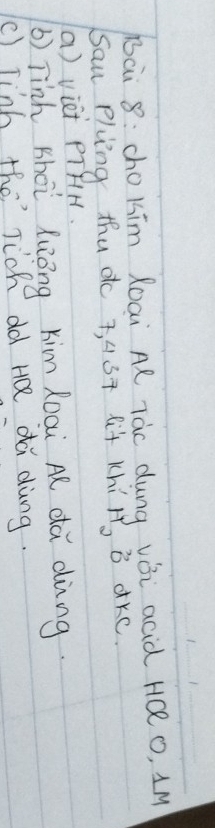 Bài 8: cho kim loại Al tác dụng với acid HCl 0,1M
Sau Phứng thu đc 7,437 lít khí H₂ ở đkc.
a) viết PTHH.
b) Tính khối lượng kim loại Al đã dùng.
c) Tính thể Tích dd HCl đã dùng.